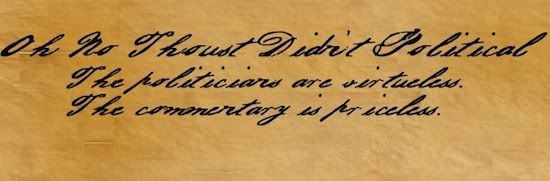 Oh No Thoust Didn't Political
The politicians are virtueless.
The commentary is priceless.